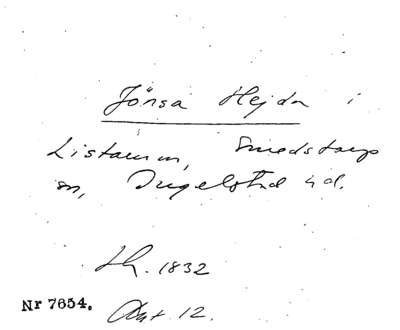 Jönsa Hejda i
Listarum, Smedstorps
sn, Ingelstad hd.
Lh. 1832
Nr 7654. Akt 12.